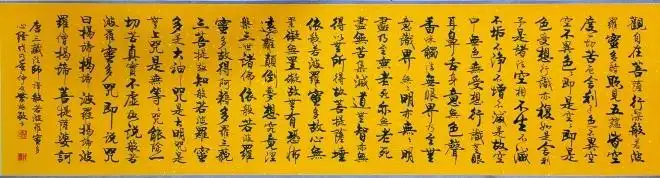 觀自在菩薩行深般若波
羅蜜多時照見五蘊皆空
度一切苦厄舍利子色不異空
空不異色色即是空空即是
色受想行識亦復如是舍利
子是諸法空相不生不滅
不垢不淨不增不減是故空
中無色無受想行識無眼
耳鼻舌身意無色聲
香味觸法無眼界乃至無
意識界無無明亦無無明
盡乃至無老死亦無老死
盡無苦集滅道無智亦無
得以無所得故菩提薩埵
依般若波羅蜜多故心無
罣礙無罣礙故無有恐怖
遠離顛倒夢想究竟涅
槃三世諸佛依般若波羅
蜜多故得阿耨多羅三藐
三菩提故知般若波羅蜜
多是大神咒是大明咒是
無上咒是無等等咒能除一
切苦真實不虛故說般若
波羅蜜多咒即說咒
曰揭諦揭諦波羅揭諦波
羅僧揭諦菩提薩婆訶
唐三藏法師譯般若波羅蜜多
心經